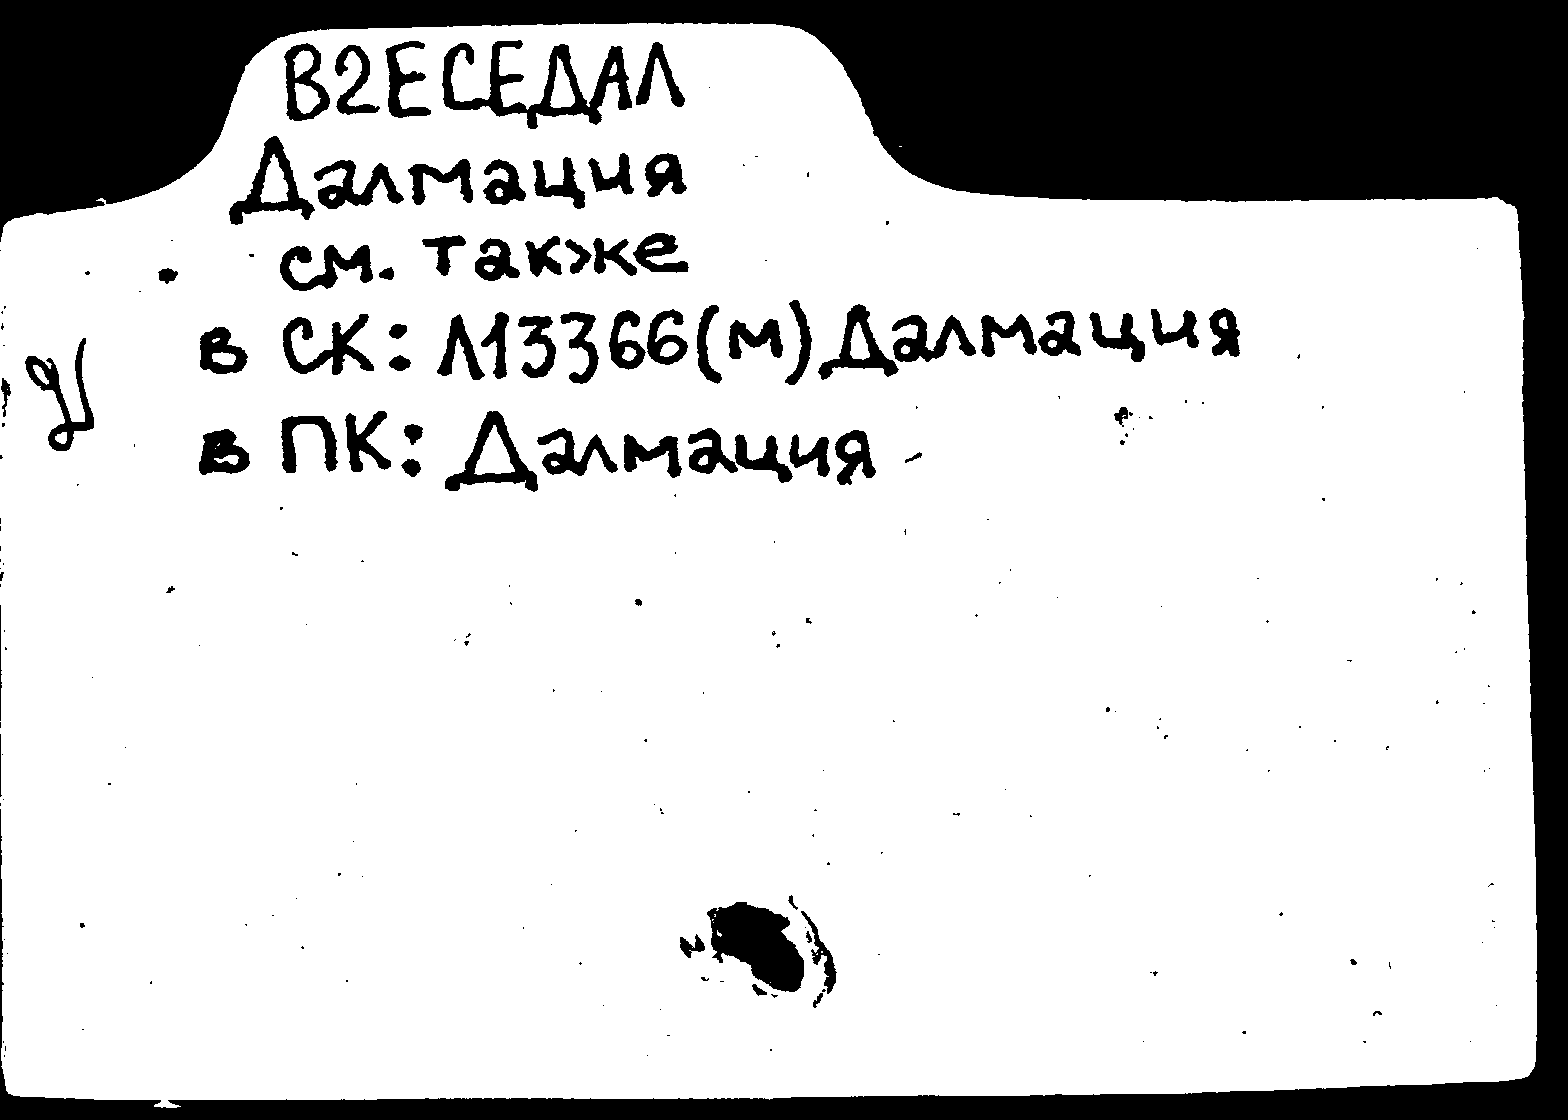 В2ЕСЕДАЛ
Далмация
см. также
в СК: Л13366(м) Далмация
в ПК: Далмация